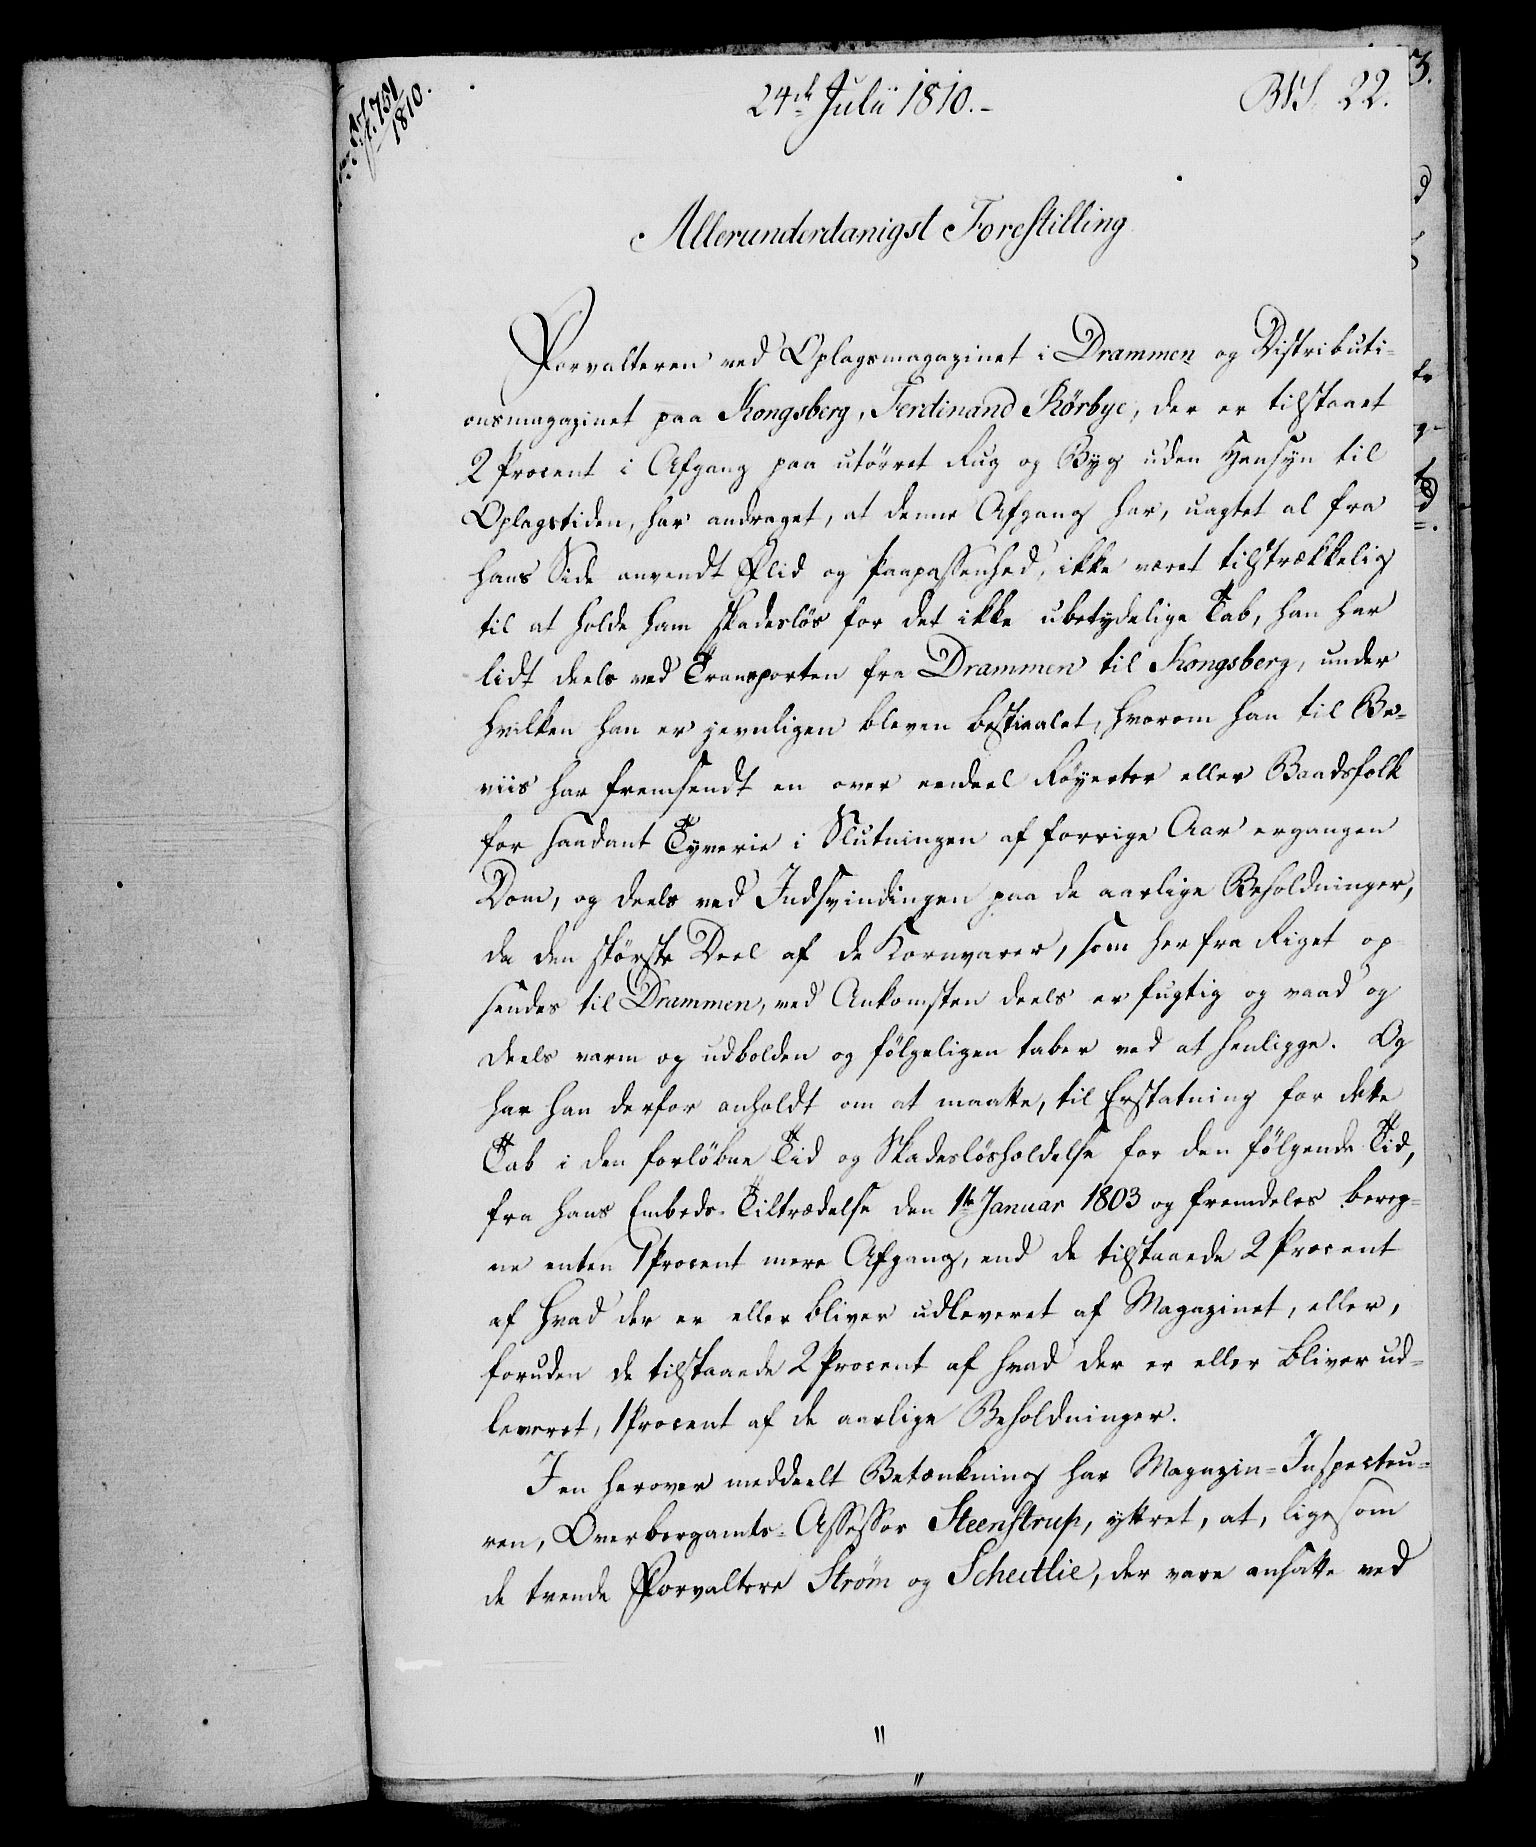 24de Julii 1810.-
22.
751
1810.
Allerunderdanigst Forestilling
Forvalteren ved Oplagsmagazinet i Drammen og Distributi-
onsmagazinet paa Kongsberg, Ferdinand Kørbye, der er tilstaaet
2 Procent i Afgang paa utørret Rug og Byg uden Hensyn til
Oplagstiden, har andraget, at denne Afgang har, uagtet al fra
hans Side anvendt Flid og Paapassenhed, ikke været tilstrækkelig
til at holde ham skadesløs for det ikke ubetydelige Tab, han har
lidt deels ved Transporten fra Drammen til Kongsberg, under
hvilken han er jevnligen bleven bestiaalet, hvorom han til Be-
viis har fremsendt en over eendeel Røyerter eller Baadsfolk
for saadant Tyverie i Slutningen af forrige Aar ergangen
Dom, og deels ved Indsvindingen paa de aarlige Beholdninger,
da den største Deel af de Kornvarer, som herfra Riget op-
sendes til Drammen, ved Ankomsten deels er fugtig og vaad og
deels varm og udbolden og følgeligen taber ved at henligge. Og
har han derfor anholdt om at maatte, til Erstatning for dette
Tab i den forløbne Tid og Skadesløsholdelse for den følgende Tid,
fra hans Embeds-Tiltrædelse den 1te Januar 1803 og fremdeles bereg-
ne enten 1 Procent mere Afgang, end de tilstaaede 2 Procent
af hvad der er eller bliver udleveret af Magazinet, eller,
foruden de tilstaaede 2 Procent af hvad der er eller bliver ud-
leveret, 1 Procent af de aarlige Beholdninger.
I en herover meddeelt Betænkning har Magazin-Inspecteu-
ren, Overbergamts-Assessor Steenstrup, yttret, at, ligesom
de tvende Forvaltere Strøm og Scheitlie, der vare ansatte ved